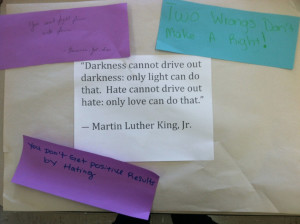 Two Wrongs Don't
Make A Right!
"Darkness cannot drive out
darkness: only light can do
that. Hate cannot drive out
hate: only love can do that."
— Martin Luther King, Jr.
You Don't Get Positive Results
by Hating